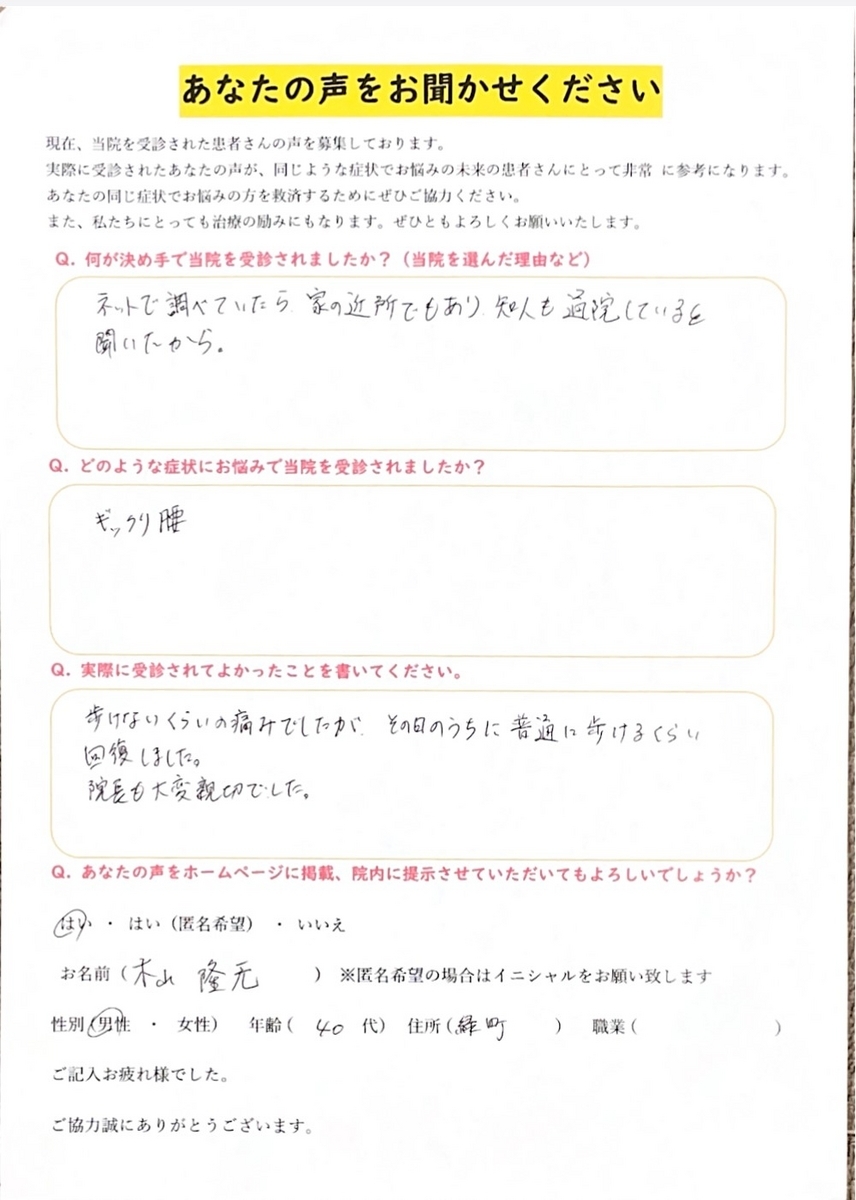 あなたの声をお聞かせください
現在、当院を受診された患者さんの声を募集しております。
実際に受診されたあなたの声が、同じような症状でお悩みの未来の患者さんにとって非常 に参考になります。
あなたの同じ症状でお悩みの方を救済するためにぜひご協力ください。
また、私たちにとっても治療の励みにもなります。ぜひともよろしくお願いいたします。
Q. 何が決め手で当院を受診されましたか？（当院を選んだ理由など）
ネットで調べていたら、家の近所でもあり、知人も通院していると
聞いたから。
Q. どのような症状にお悩みで当院を受診されましたか？
ギックリ腰
Q. 実際に受診されてよかったことを書いてください。
歩けないくらいの痛みでしたが、その日のうちに普通に歩けるくらい
回復しました。
院長も大変親切でした。
Q. あなたの声をホームページに掲載、院内に提示させていただいてもよろしいでしょうか？
はい ・ はい（匿名希望） ・ いいえ
お名前（木山 隆元 ） ※匿名希望の場合はイニシャルをお願い致します
性別（男性 ・ 女性） 年齢（ 40 代） 住所（緑町 ） 職業（ ）
ご記入お疲れ様でした。
ご協力誠にありがとうございます。